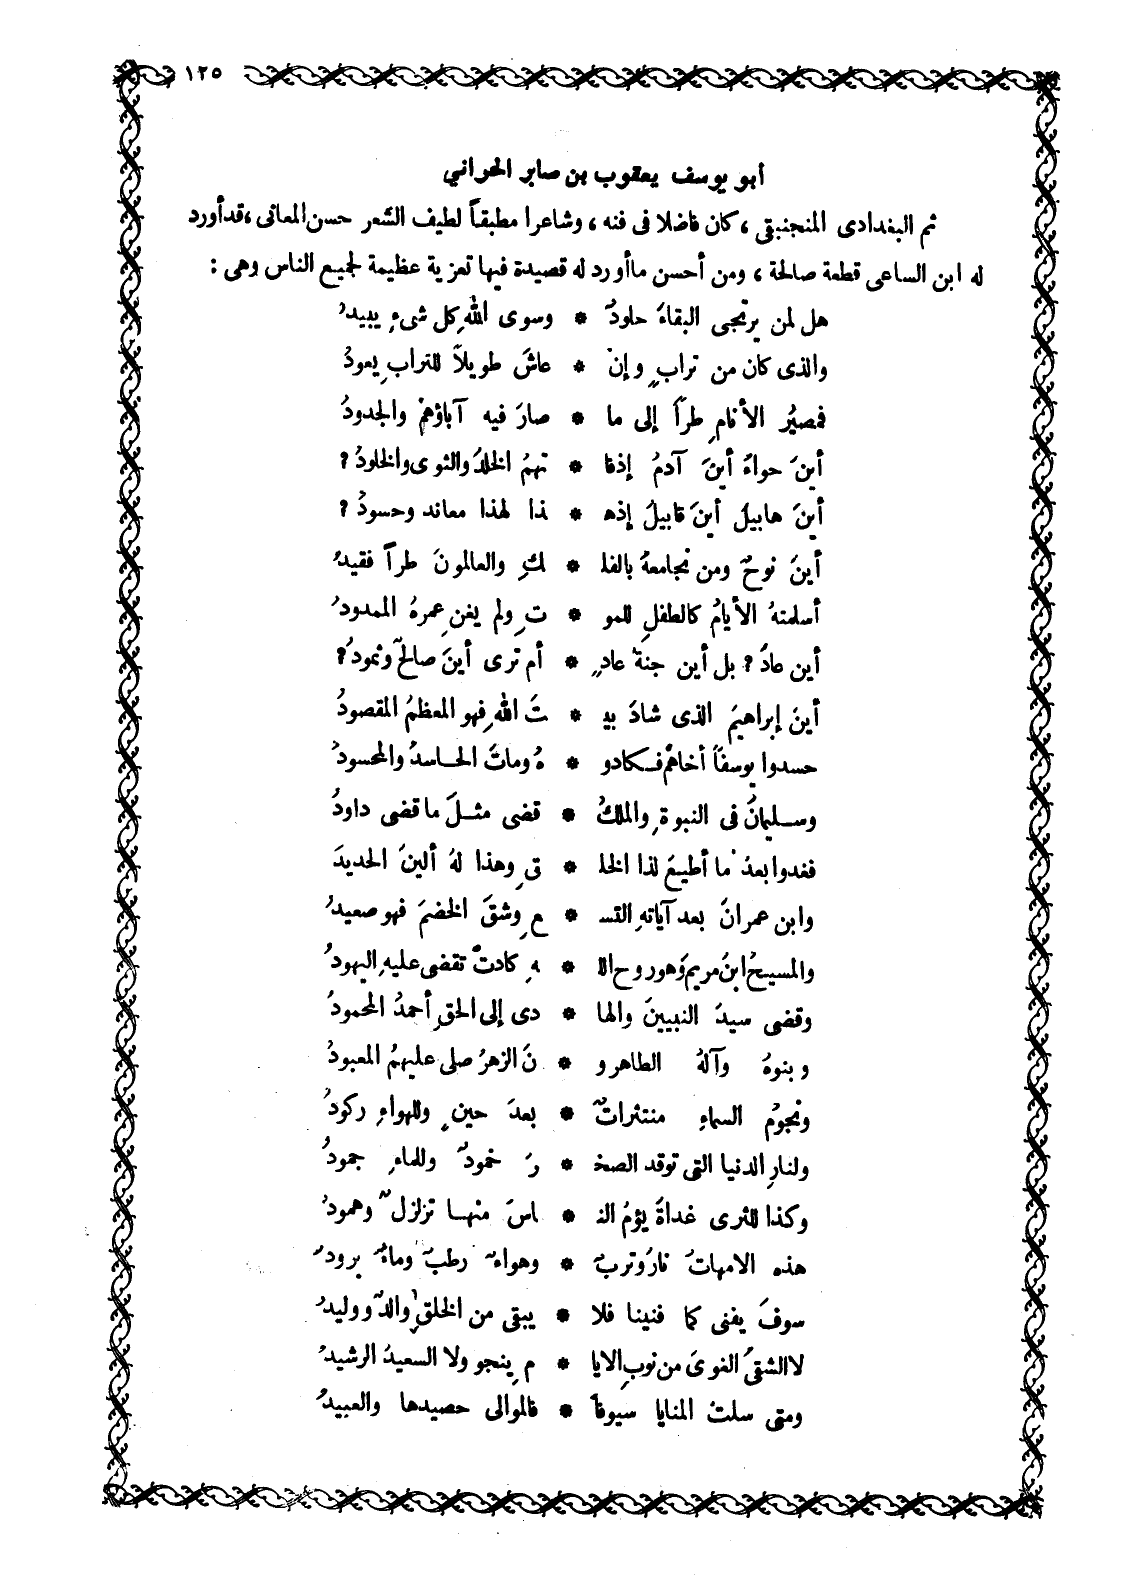 ١٢٥
أبو يوسف يعقوب بن صابر الحراني
ثم البغدادى المنجنيقي ، كان فاضلا فى فنه ، وشاعرا مطبقاً لطيف الشعر حسن المعانى ، قد أورد
له ابن الساعى قطعة صالحة ، ومن أحسن ما أورد له قصيدة فيها تعزية عظيمة لجميع الناس وهى :
هل لمن يرتجى البقاءَ خلودٌ * وسوى اللهِ كل شىءٍ يبيدُ
والذى كان من ترابٍ وإنْ * عاشَ طويلاً للترابِ يعودُ
فمصيرُ الأنامِ طراً إلى ما * صارَ فيه آباؤهمْ والجدودُ
أينَ حواءُ أينَ آدمُ إذفا * تهمُ الخلدُ والثوى والخلودُ ؟
أينَ هابيلُ أينَ قابيلُ إذه * ذا لهذا معاند وحسودُ ؟
أينَ نوحٌ ومن نجامعهُ بالفلـ * لكِ والعالمونَ طراً فقيدُ
أسلمتهُ الأيامُ كالطفلِ للمو * تِ ولم يغنِ عمرهُ الممدودُ
أين عادٌ ؟ بل أين جنةُ عادٍ * أم ترى أينَ صالحٌ وثمودُ ؟
أينَ إبراهيمَ الذى شادَ بيـ * تَ اللهِ فهو المعظمُ المقصودُ
حسدوا يوسفاً أخاهمْ فـكادو * هُ وماتَ الحـاسدُ والمحسودُ
وسـليمانُ فى النبوةِ والملكُ * قضى مثـلَ ما قضى داودُ
فغدوا بعدُ ما أطيعَ لذا الخلـ * قِ وهذا لهُ ألينَ الحديدَ
وابن عمرانَ بعد آياتهِ التسـ * عِ وشقَ الخضمَ فهو صعيدُ
والمسيحُ ابنُ مريمَ وهو روح اللـ * هِ كادتْ تقضى عليهِ اليهودُ
وقضى سيدُ النبيينَ والها * دى إلى الحقِ أحمدُ المحمودُ
وبنوهُ وآلهُ الطاهرو * نَ الزهرُ صلى عليهمُ المعبودُ
ونجومُ السماءِ منتثراتٌ * بعدَ حينٍ وللهواءِ ركودُ
ولنارِ الدنيا التى توقد الصخـ * رَ خمودٌ وللماءِ جمودُ
وكذا للثرى غداةَ يؤمُ النـ * اسَ منهـا تزلزلٌ وهمودُ
هذه الامهاتُ نارٌ وتربٌ * وهواءٌ رطبٌ وماءٌ برودٌ
سوفَ يفنى كما فنينا فلا * يبقى من الخلقِ والدٌ ووليدُ
لا الشقىُ الغوىَ من نوبِ الايا * مِ ينجو ولا السعيدُ الرشيدُ
ومتى سلتْ المنايا سيوفاً * فالموالى حصيدها والعبيدُ